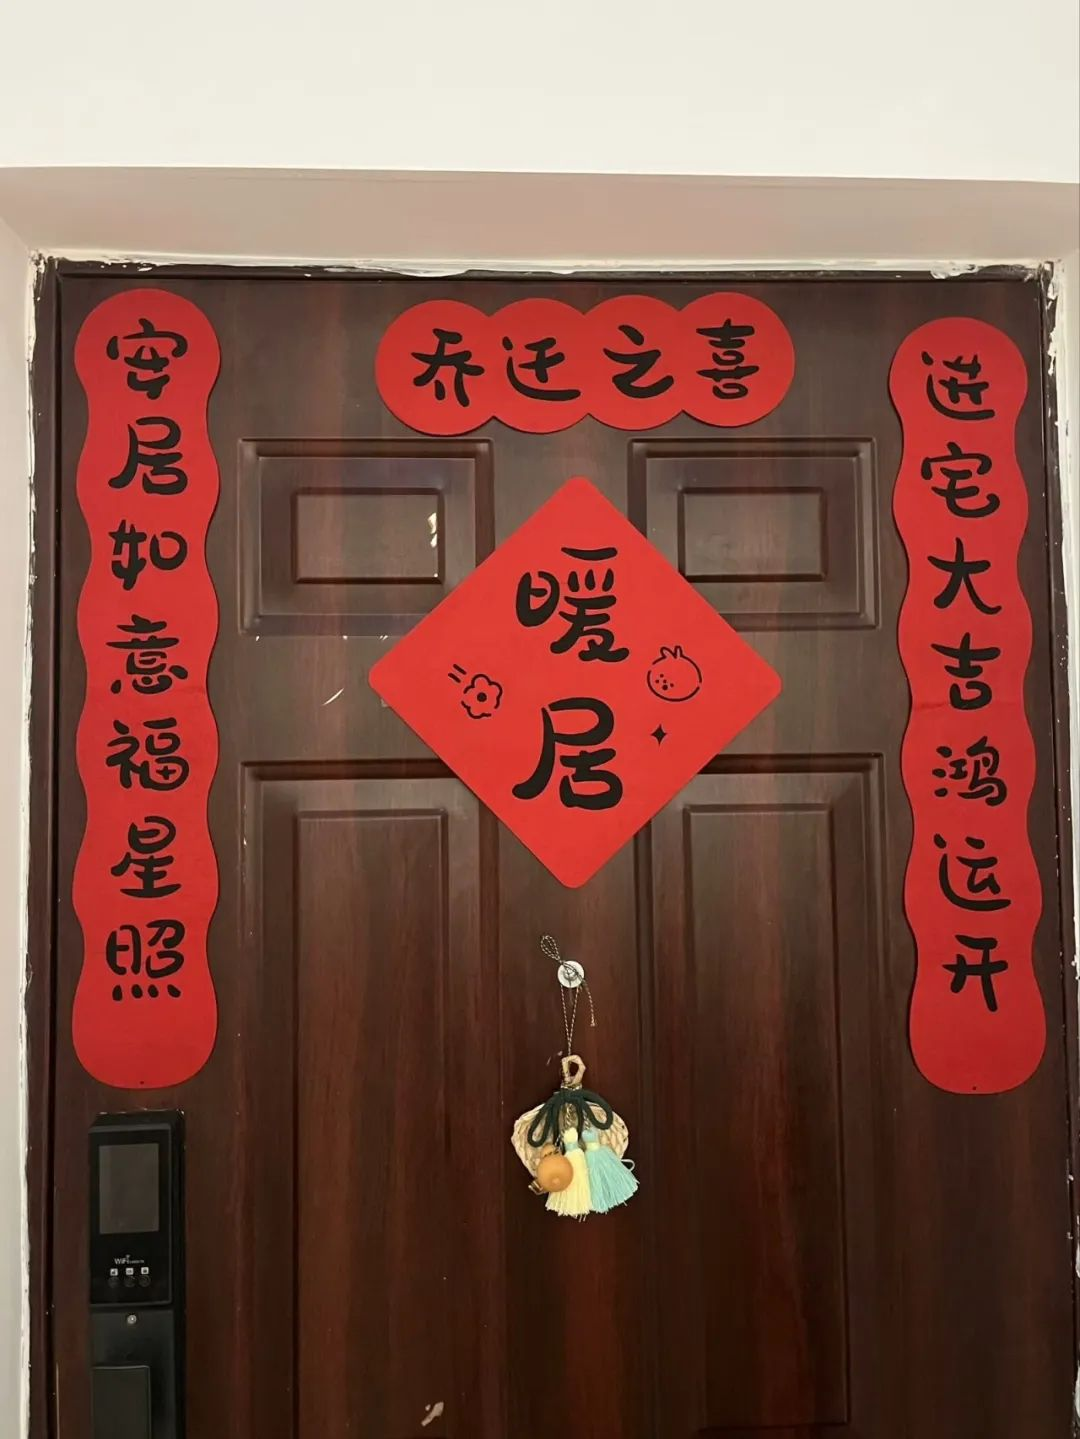 乔迁之喜
进宅大吉鸿运开
安居如意福星照
暖居
WiFi